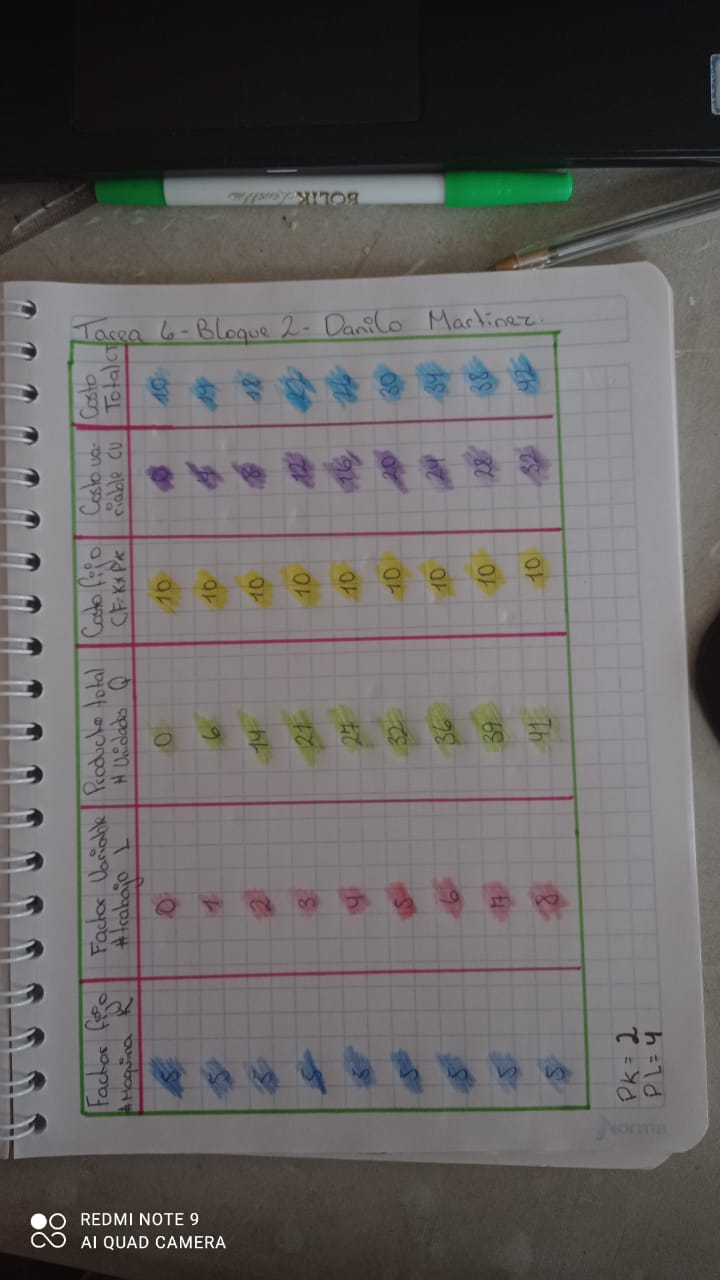 BOLIK
Tarea 6 - Bloque 2 - Danilo Martinez.
Factor fijo # Maquina K | Factor Variable # trabajo L | Producto total # Unidades Q | Costo fijo CF=KxPK | Costo va-riable CV | Costo Total CT
5 0 0 10 0 10
5 1 6 10 4 14
5 2 14 10 8 18
5 3 21 10 12 22
5 4 27 10 16 26
5 5 32 10 20 30
5 6 36 10 24 34
5 7 39 10 28 38
5 8 41 10 32 42
PK = 2
PL = 4
norma
REDMI NOTE 9
AI QUAD CAMERA